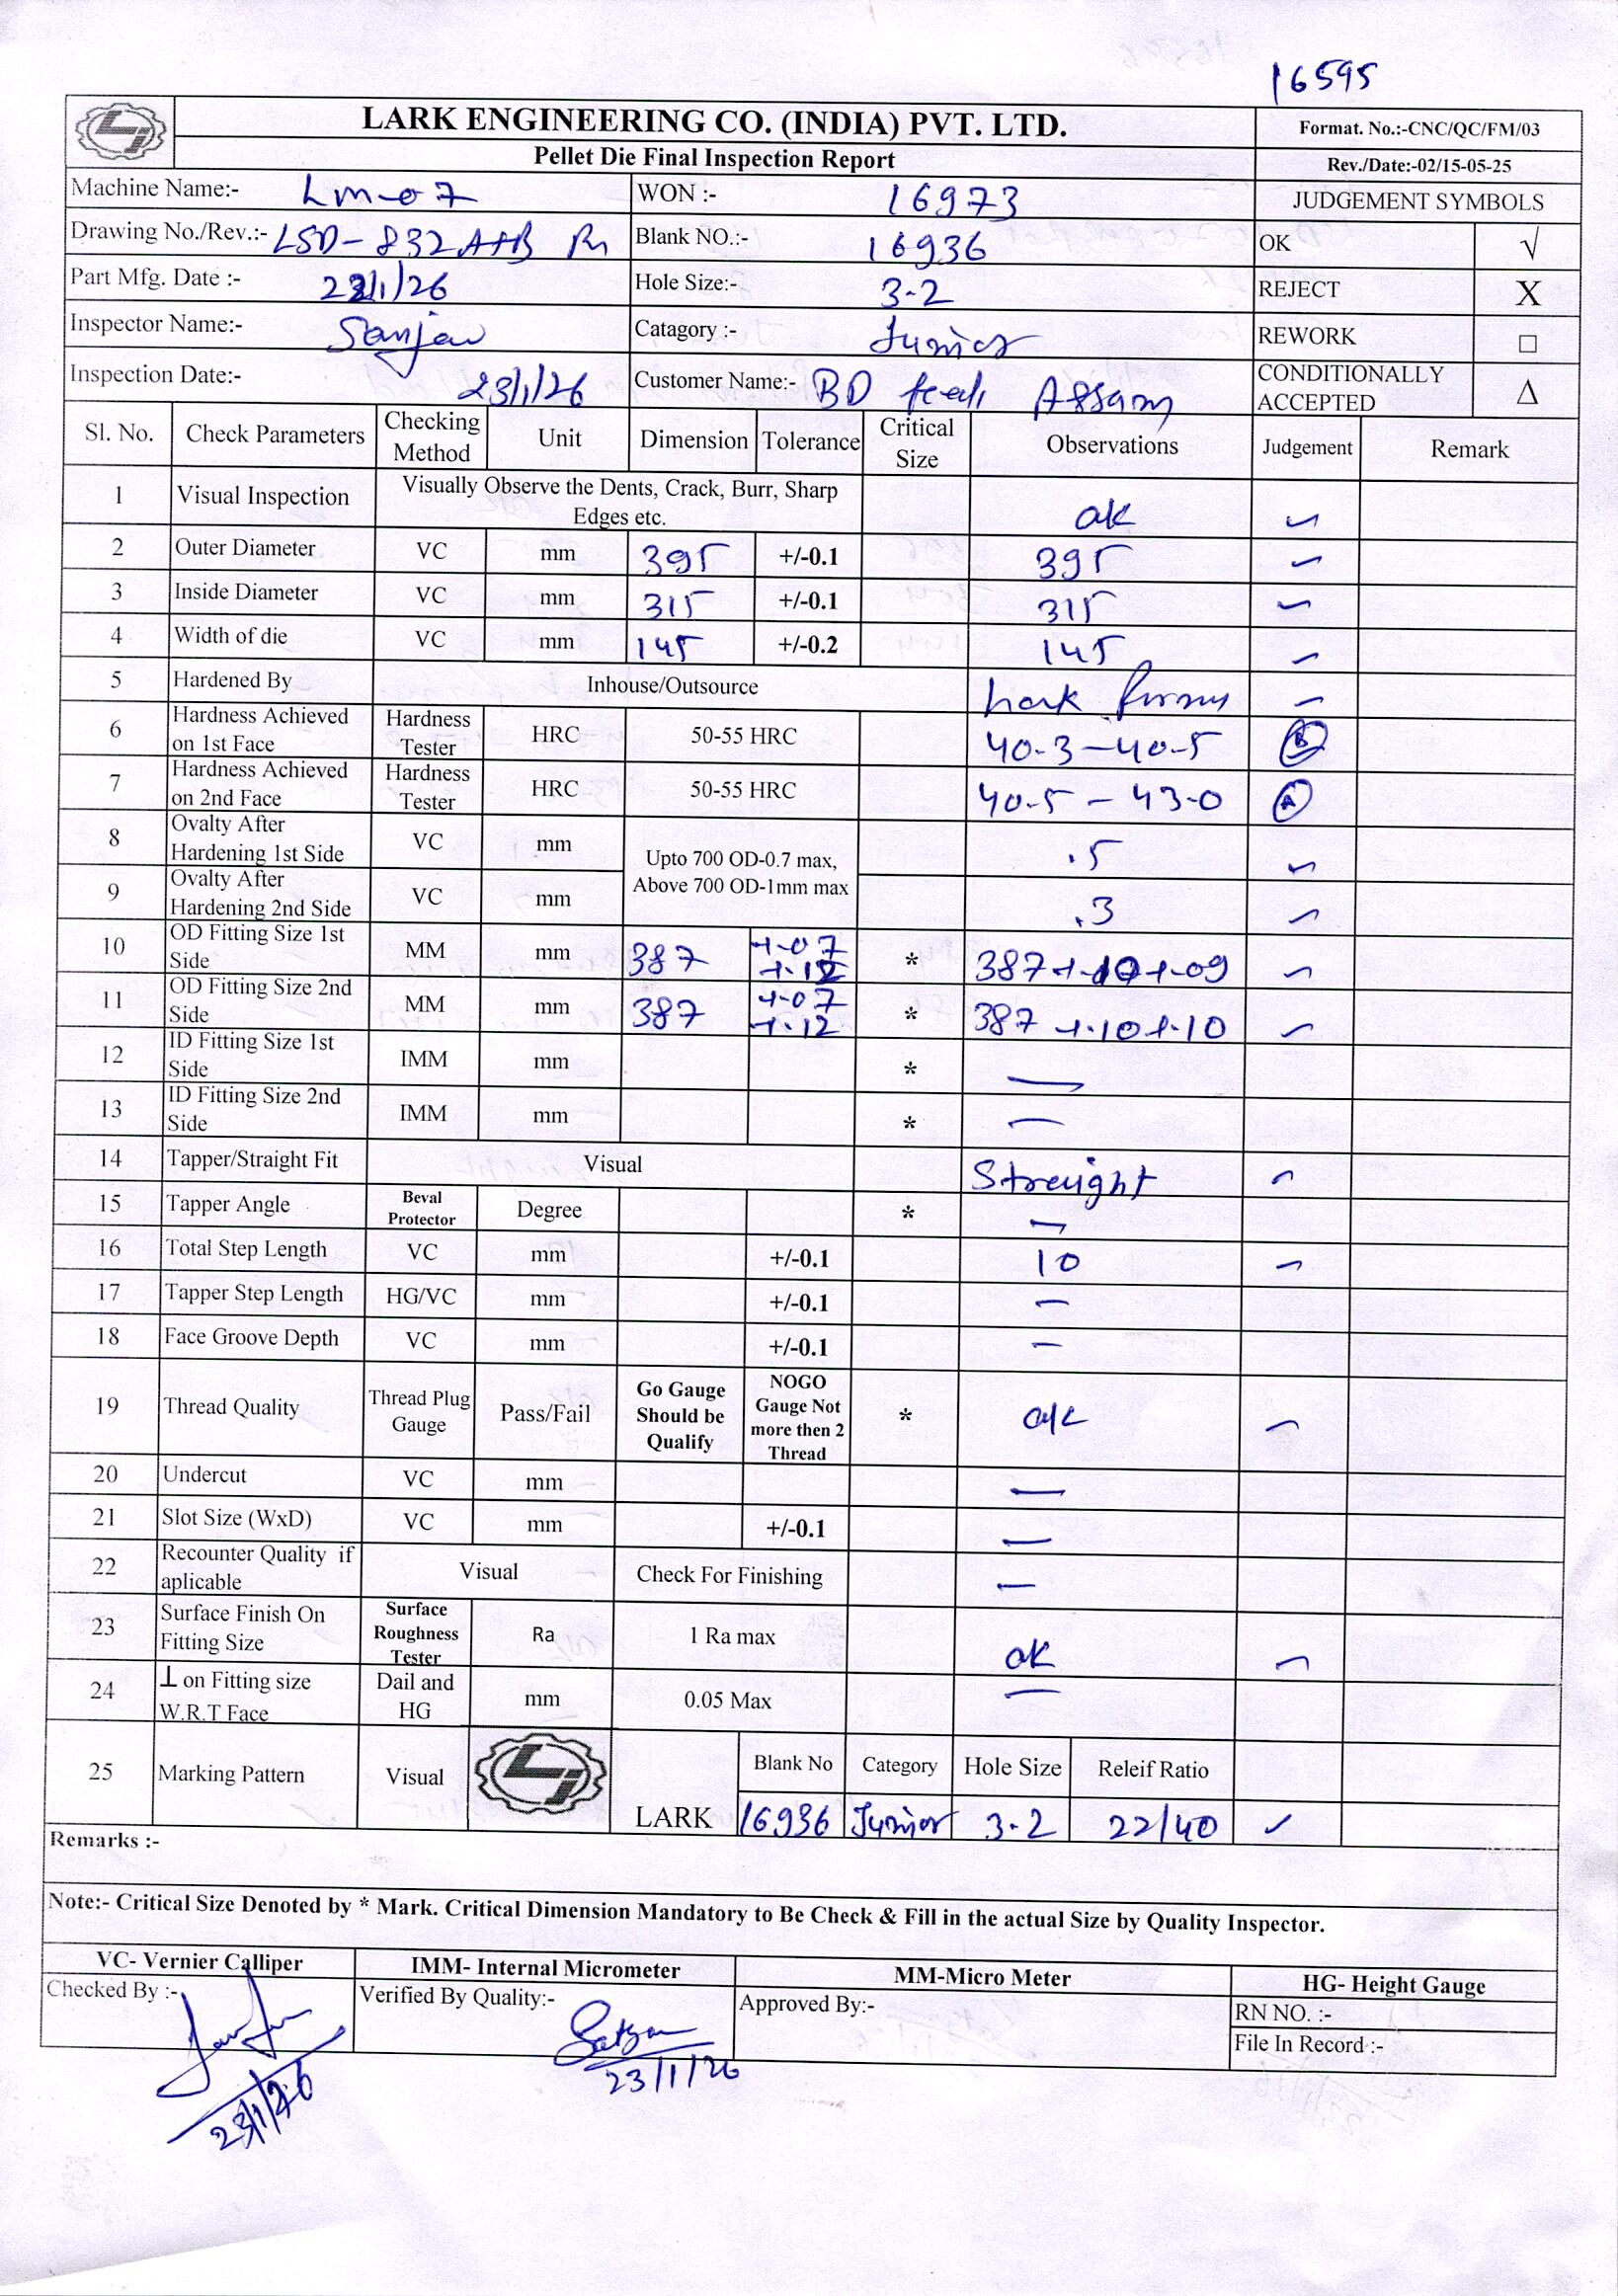 16595
LARK ENGINEERING CO. (INDIA) PVT. LTD.
Format. No.:-CNC/QC/FM/03
Pellet Die Final Inspection Report
Rev./Date:-02/15-05-25
Machine Name:- Lm-07 WON :- 16973 JUDGEMENT SYMBOLS
Drawing No./Rev.:- LSD-832A+B Blank NO.:- 16936 OK √
Part Mfg. Date :- 22/1/26 Hole Size:- 3-2 REJECT X
Inspector Name:- Sanjav Catagory :- Junior REWORK □
Inspection Date:- 23/1/26 Customer Name:- BD feed, Assam CONDITIONALLY ACCEPTED Δ
Sl. No. Check Parameters Checking Method Unit Dimension Tolerance Critical Size Observations Judgement Remark
1 Visual Inspection Visually Observe the Dents, Crack, Burr, Sharp Edges etc. ok ✓
2 Outer Diameter VC mm 395 +/-0.1 395 ✓
3 Inside Diameter VC mm 315 +/-0.1 315 ✓
4 Width of die VC mm 145 +/-0.2 145 ✓
5 Hardened By Inhouse/Outsource Lark ✓
6 Hardness Achieved on 1st Face Hardness Tester HRC 50-55 HRC 40-3-40-5
7 Hardness Achieved on 2nd Face Hardness Tester HRC 50-55 HRC 40-5 - 43-0 A
8 Ovalty After Hardening 1st Side VC mm Upto 700 OD-0.7 max, Above 700 OD-1mm max .5 ✓
9 Ovalty After Hardening 2nd Side VC mm .3 ✓
10 OD Fitting Size 1st Side MM mm 387 +.07 +.12 * 387 +.10 +.09 ✓
11 OD Fitting Size 2nd Side MM mm 387 +.07 +.12 * 387 +.10 +.10 ✓
12 ID Fitting Size 1st Side IMM mm * —
13 ID Fitting Size 2nd Side IMM mm * —
14 Tapper/Straight Fit Visual Streight ✓
15 Tapper Angle Beval Protector Degree * —
16 Total Step Length VC mm +/-0.1 10 ✓
17 Tapper Step Length HG/VC mm +/-0.1 —
18 Face Groove Depth VC mm +/-0.1 —
19 Thread Quality Thread Plug Gauge Pass/Fail Go Gauge Should be Qualify NOGO Gauge Not more then 2 Thread * ok ✓
20 Undercut VC mm —
21 Slot Size (WxD) VC mm +/-0.1 —
22 Recounter Quality if aplicable Visual Check For Finishing —
23 Surface Finish On Fitting Size Surface Roughness Tester Ra 1 Ra max ok ✓
24 ⊥ on Fitting size W.R.T Face Dail and HG mm 0.05 Max —
25 Marking Pattern Visual LARK Blank No Category Hole Size Releif Ratio
16936 Junior 3-2 22/40 ✓
Remarks :-
Note:- Critical Size Denoted by * Mark. Critical Dimension Mandatory to Be Check & Fill in the actual Size by Quality Inspector.
VC- Vernier Calliper IMM- Internal Micrometer MM-Micro Meter HG- Height Gauge
Checked By :- Verified By Quality:- Approved By:- RN NO. :-
File In Record :-
23/1/26 23/1/26